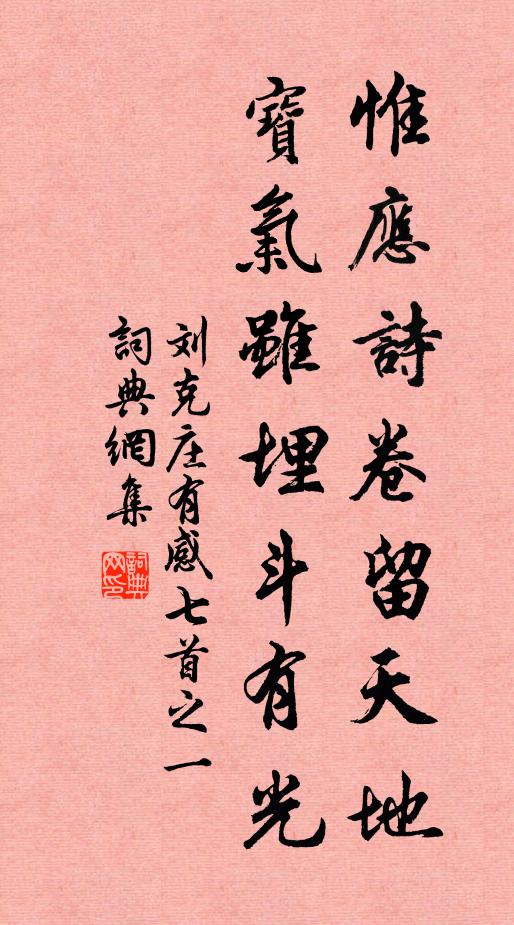 惟應詩卷留天地
寶氣雖埋斗有光
刘克庄有感七首之一
詞典網集
詞典網印